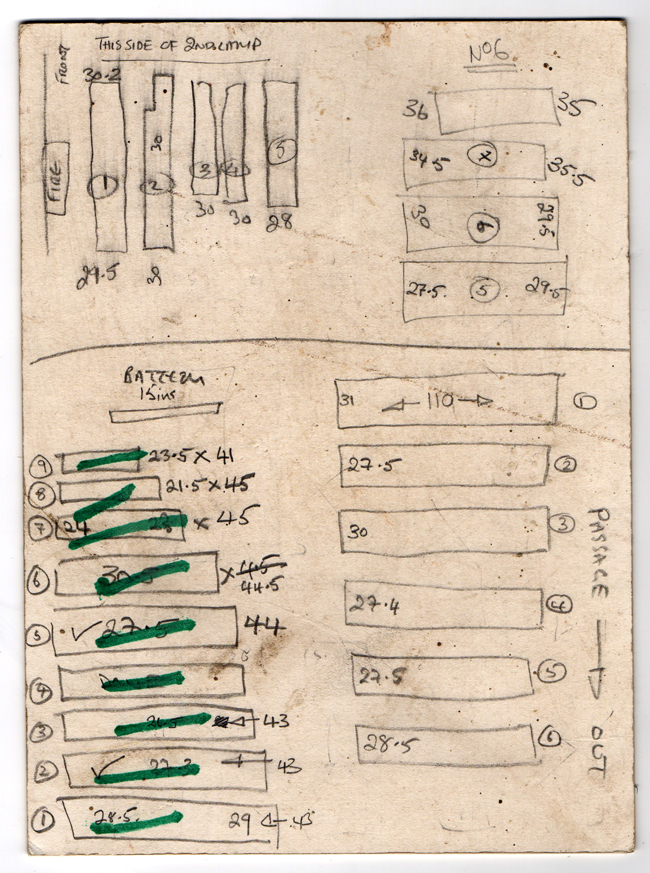 THIS SIDE OF 2ND CLAMP
FRONT
30.2
FIRE
1
2
30
3
4
5
30
30
28
29.5
30
No6
36
35
34.5
X
35.5
30
9
29.5
27.5
5
29.5
BATTERN
15ins
9
23.5 X 41
8
21.5 X 45
7
24
23
X 45
6
30.5
X 45
44.5
5
✓ 27.5
44
4
3
43
2
✓
27.2
43
1
28.5
29
43
31
← 110 →
1
27.5
2
30
3
27.4
4
27.5
5
28.5
6
PASSAGE → OUT